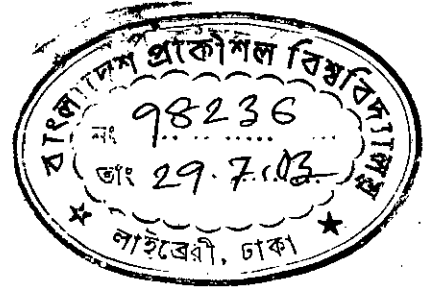 বাংলাদেশ প্রকৌশল বিশ্ববিদ্যালয়
নং 98236
তাং 29.7.03
লাইব্রেরী, ঢাকা